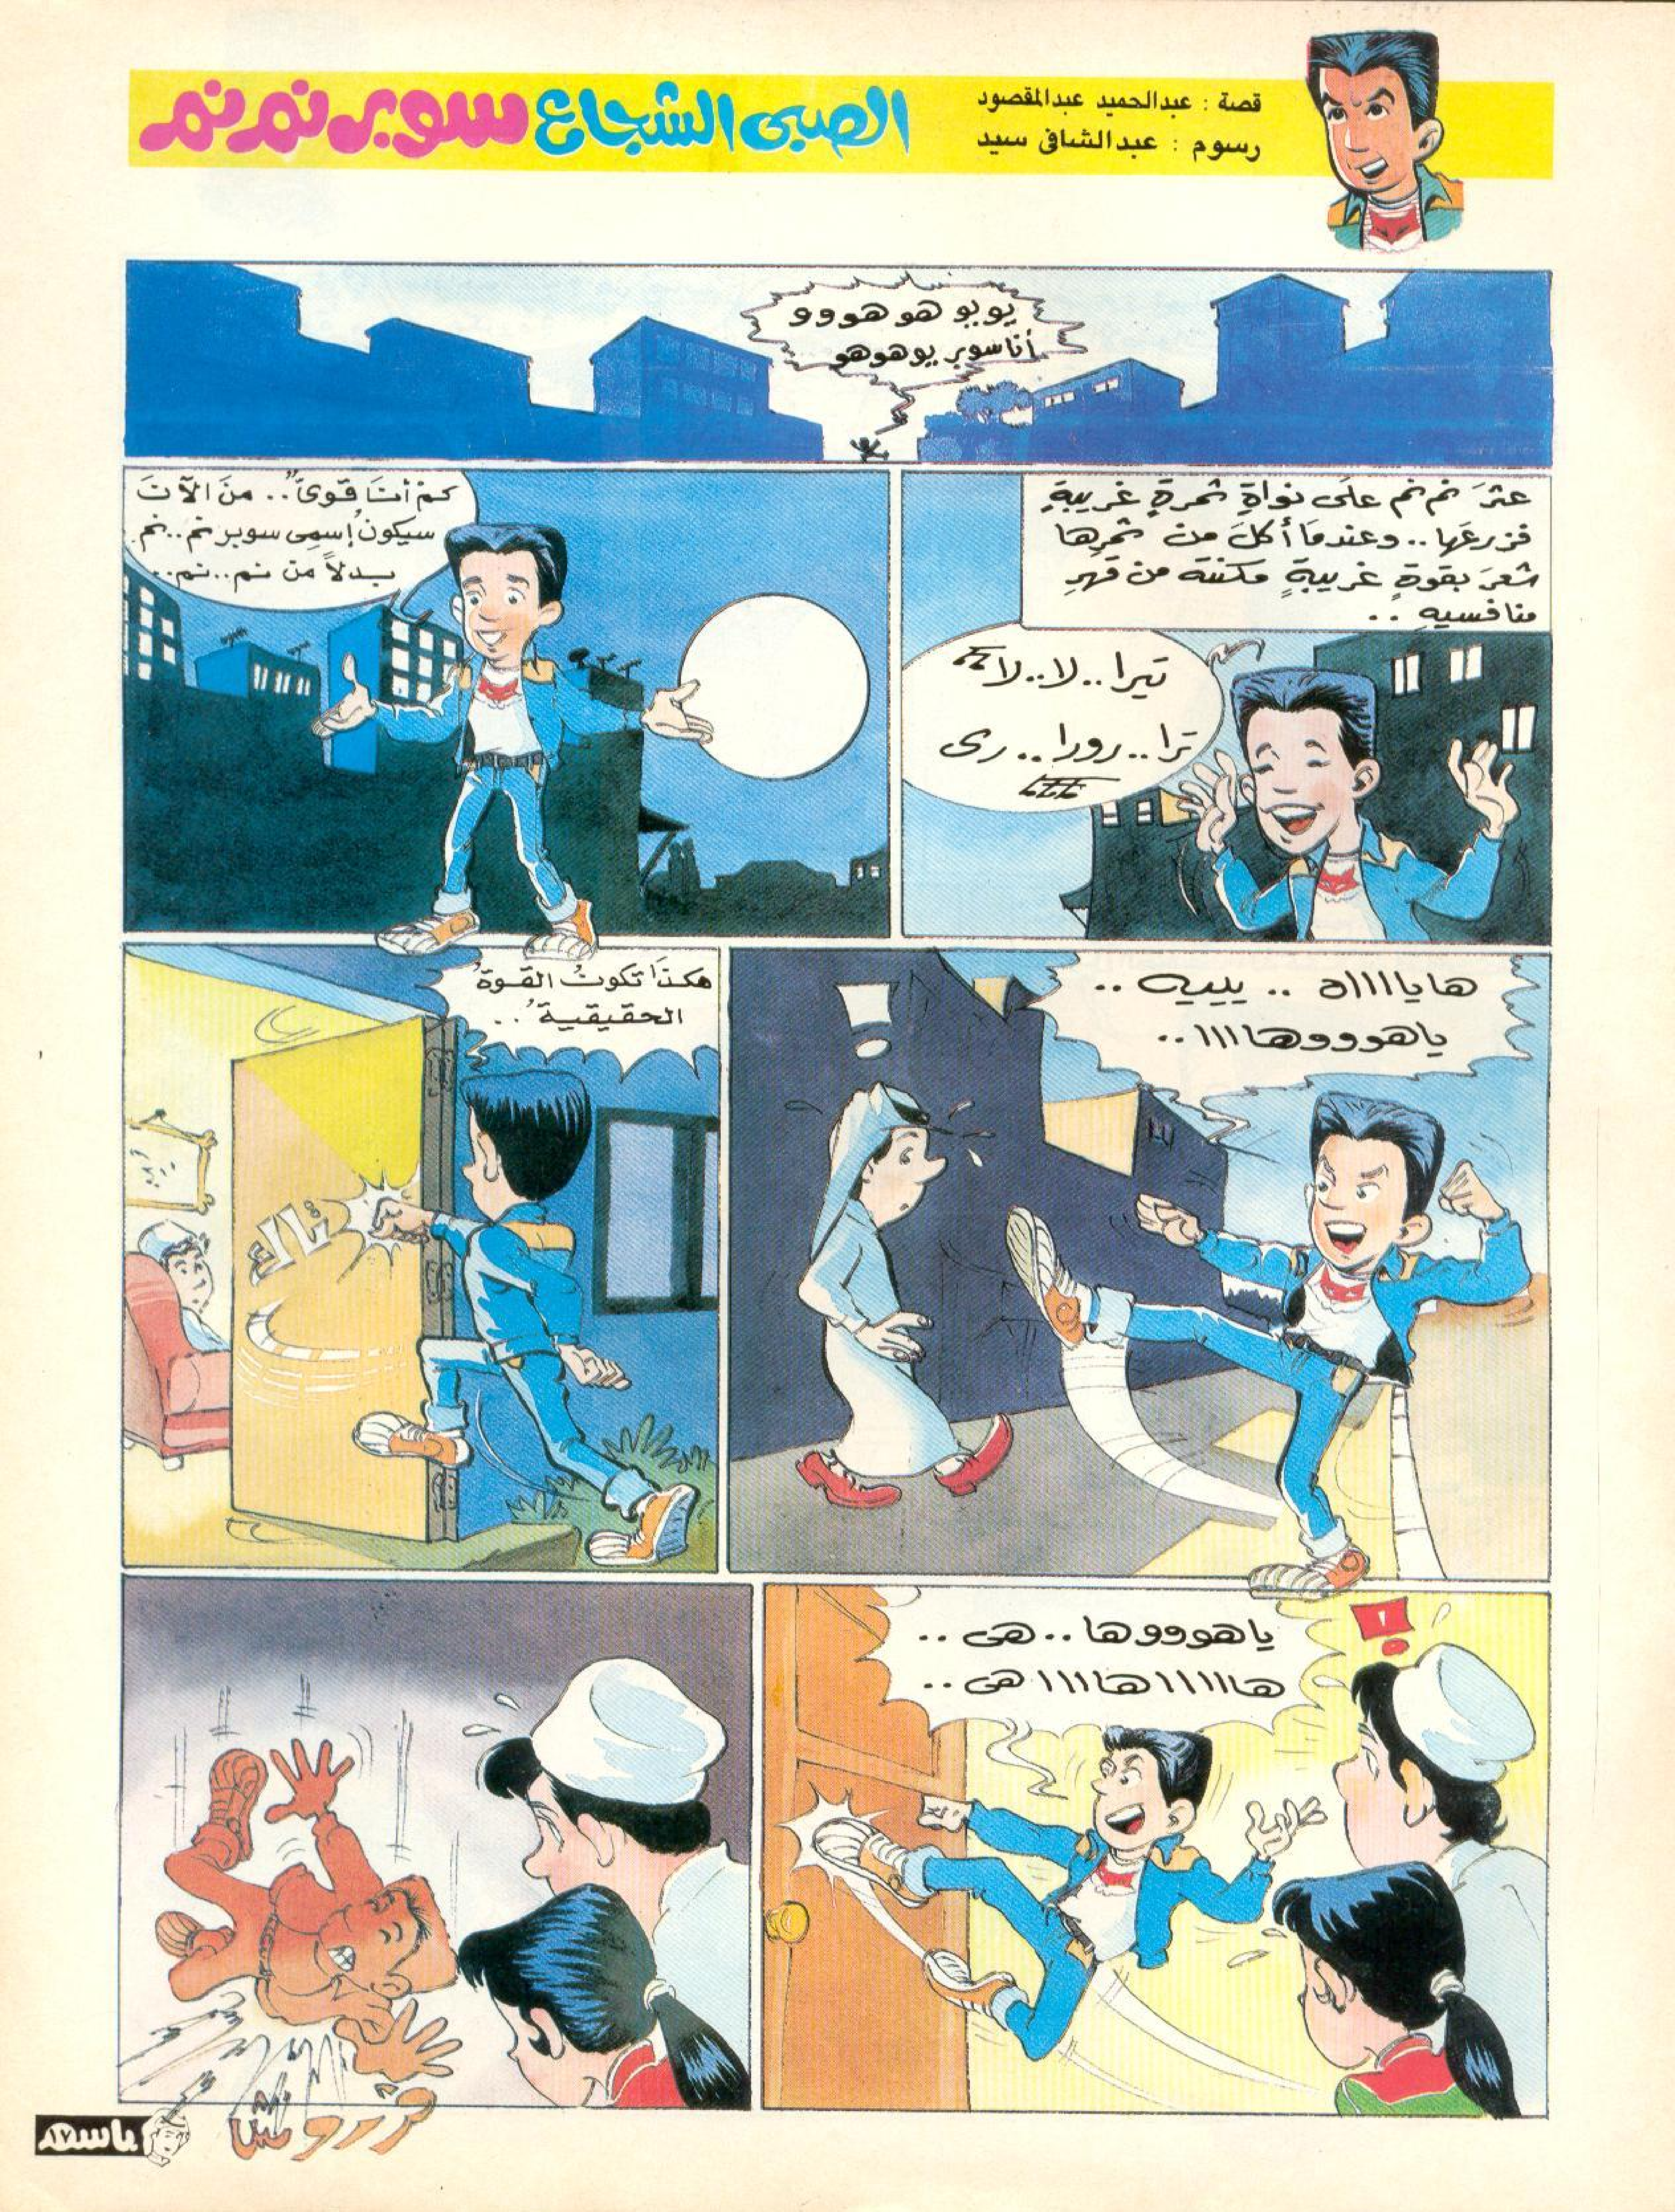 الصبى الشجاع سوبر نم نم
قصة : عبدالحميد عبدالمقصود
رسوم : عبدالشافى سيد
يوبو هو هووو
أنا سوبر يو هوهو
عثرَ نم نم علَى نواةِ ثمرةٍ غريبةٍ
فزرعَها .. وعندمَا أكلَ من ثمرِها
شعرَ بقوةٍ غريبةٍ مكنتَه من قهرِ
منافسيهِ ..
تيرا .. لا .. لا
ترا .. رورا .. رى
كمْ أنَا قوىٌّ .. منَ الآنَ
سيكونُ إسمِى سوبر نم .. نم
بدلاً من نم .. نم ..
هايااااه .. يييه ..
ياهوووهاااا ..
هكذَا تكونُ القوةُ
الحقيقيةُ ..
تاك
ياهوووها .. هى ..
هااااا هاااا هى ..
باسم
١٧